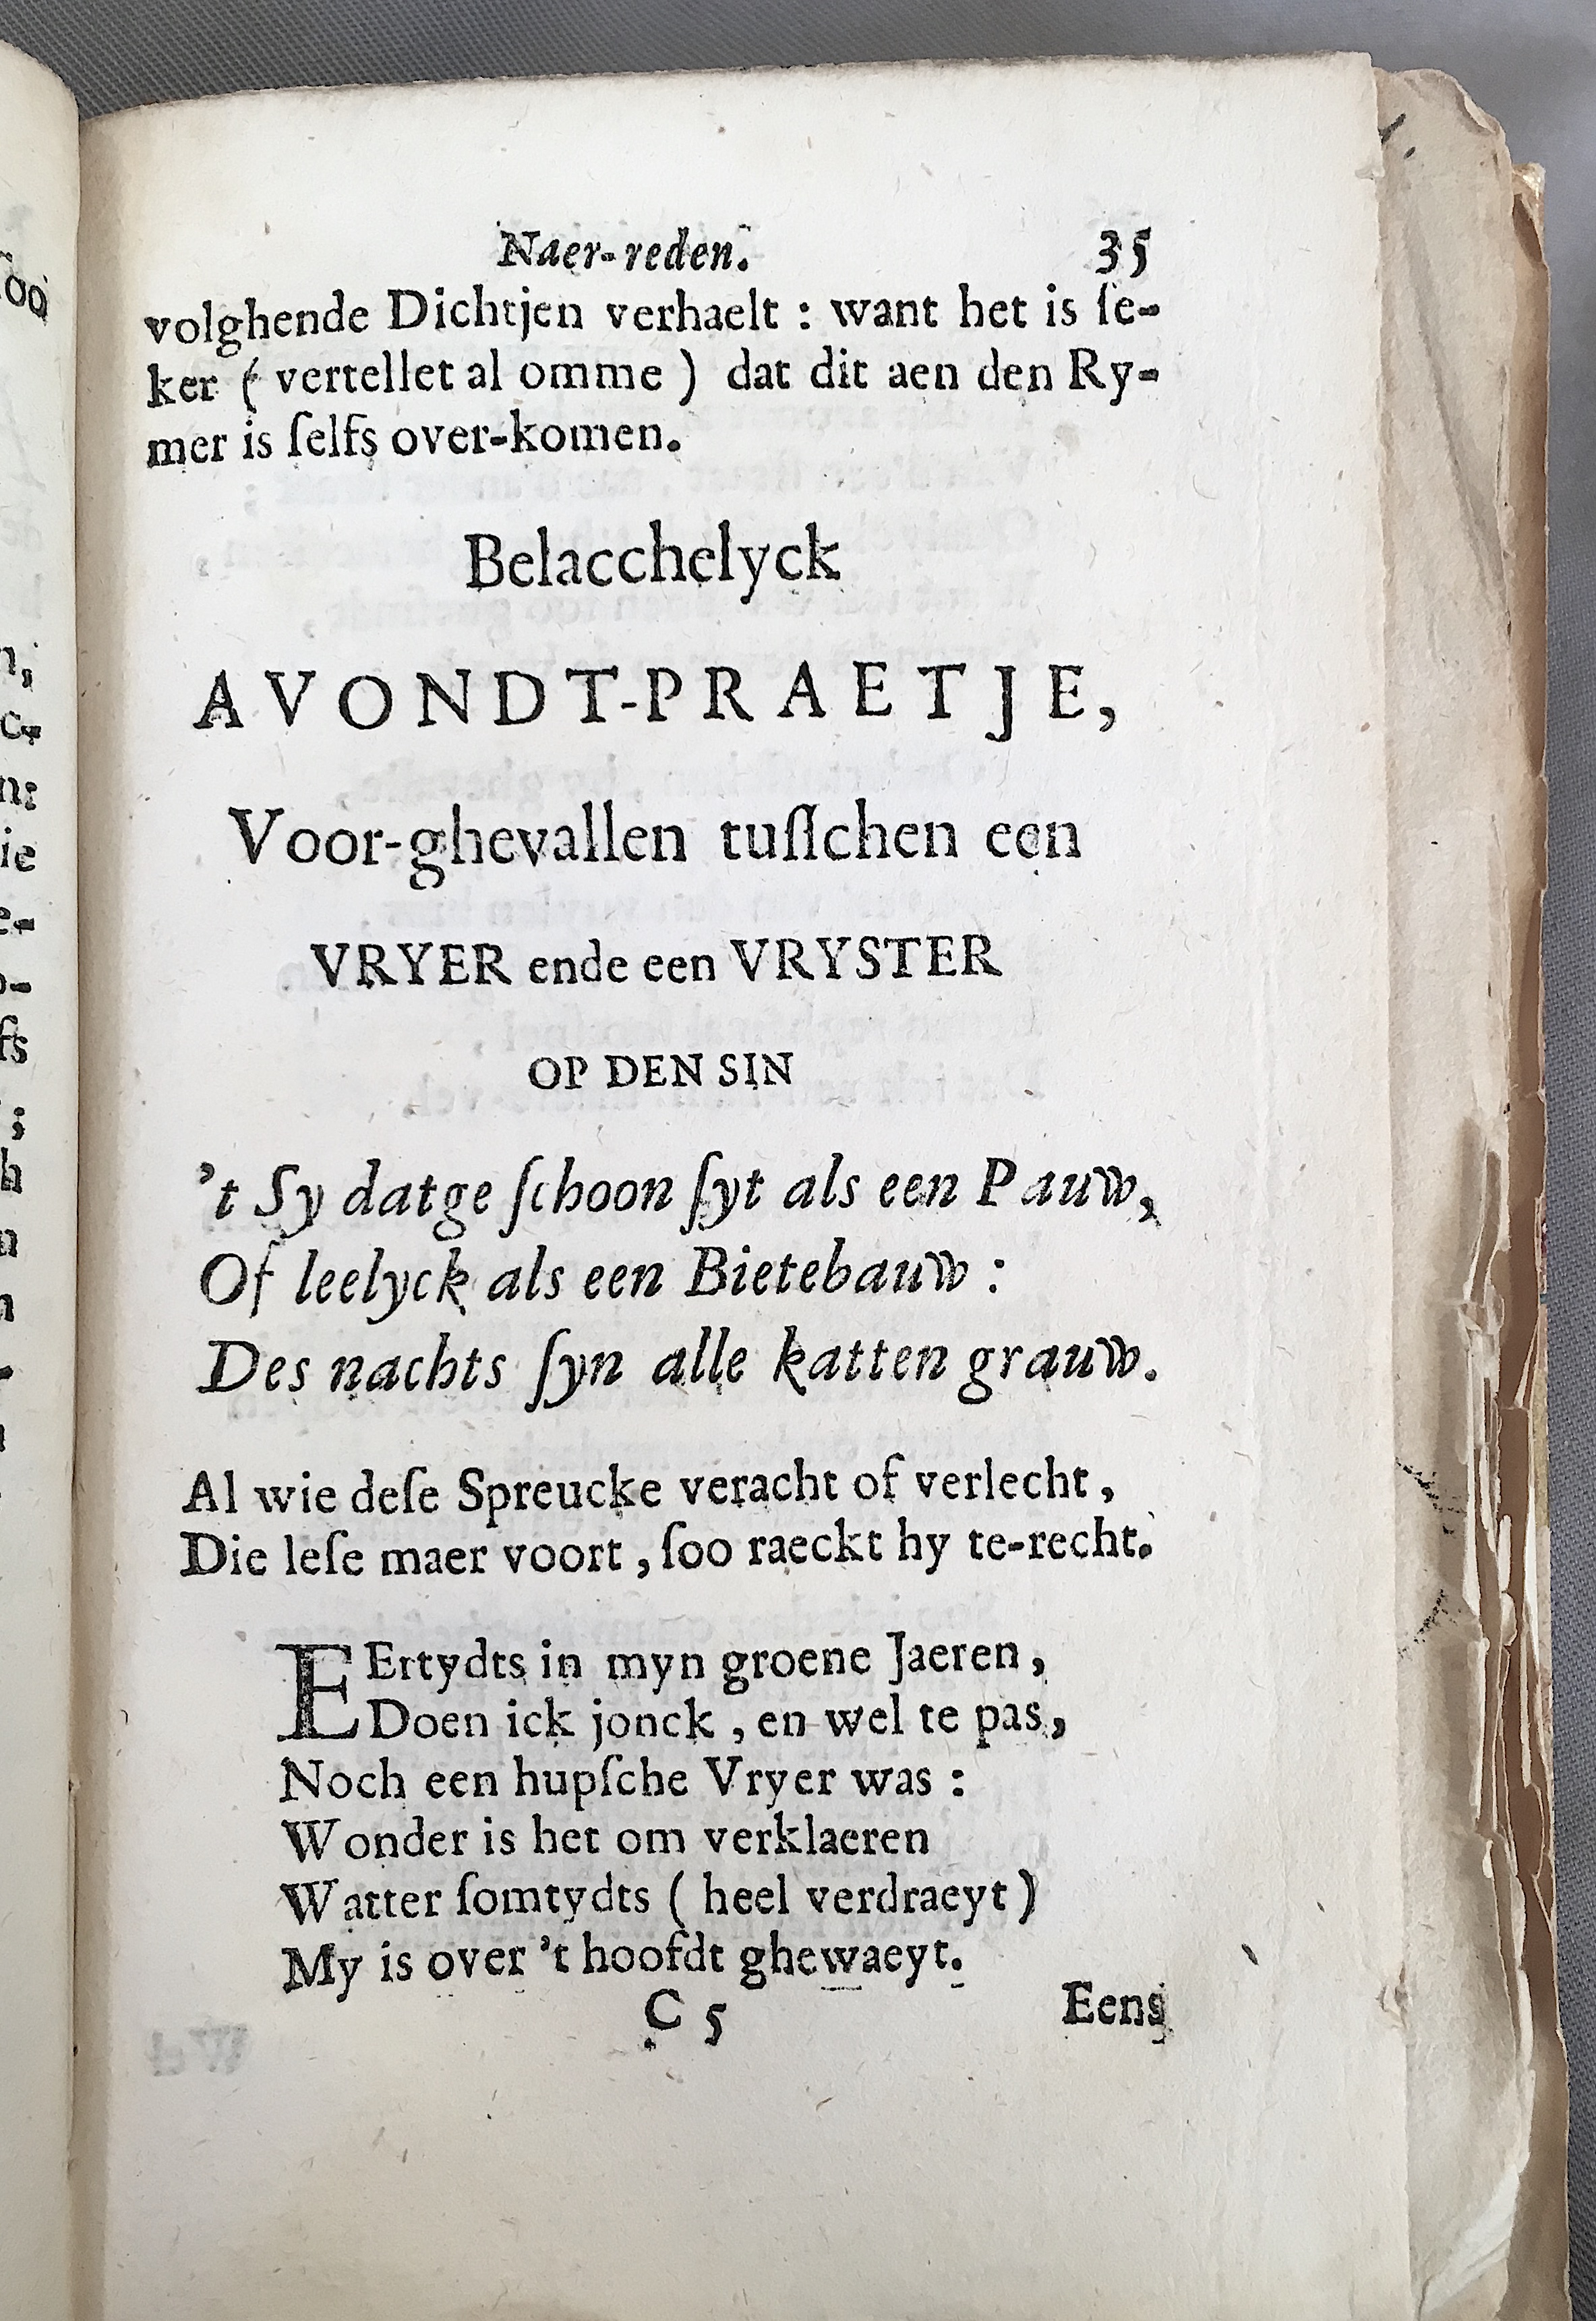 Naer-reden. 35
volghende Dichtjen verhaelt : want het is ſe-
ker ( vertellet al omme ) dat dit aen den Ry-
mer is ſelfs over-komen.
Belacchelyck
AVONDT-PRAETJE,
Voor-ghevallen tuſſchen een
VRYER ende een VRYSTER
OP DEN SIN
't Sy datge ſchoon ſyt als een Pauw,
Of leelyck als een Bietebauw :
Des nachts ſyn alle katten grauw.
Al wie deſe Spreucke veracht of verlecht,
Die leſe maer voort, ſoo raeckt hy te-recht.
EErtydts in myn groene Jaeren,
Doen ick jonck, en wel te pas,
Noch een hupſche Vryer was :
Wonder is het om verklaeren
Watter ſomtydts ( heel verdraeyt )
My is over 't hoofdt ghewaeyt.
C 5 Eens